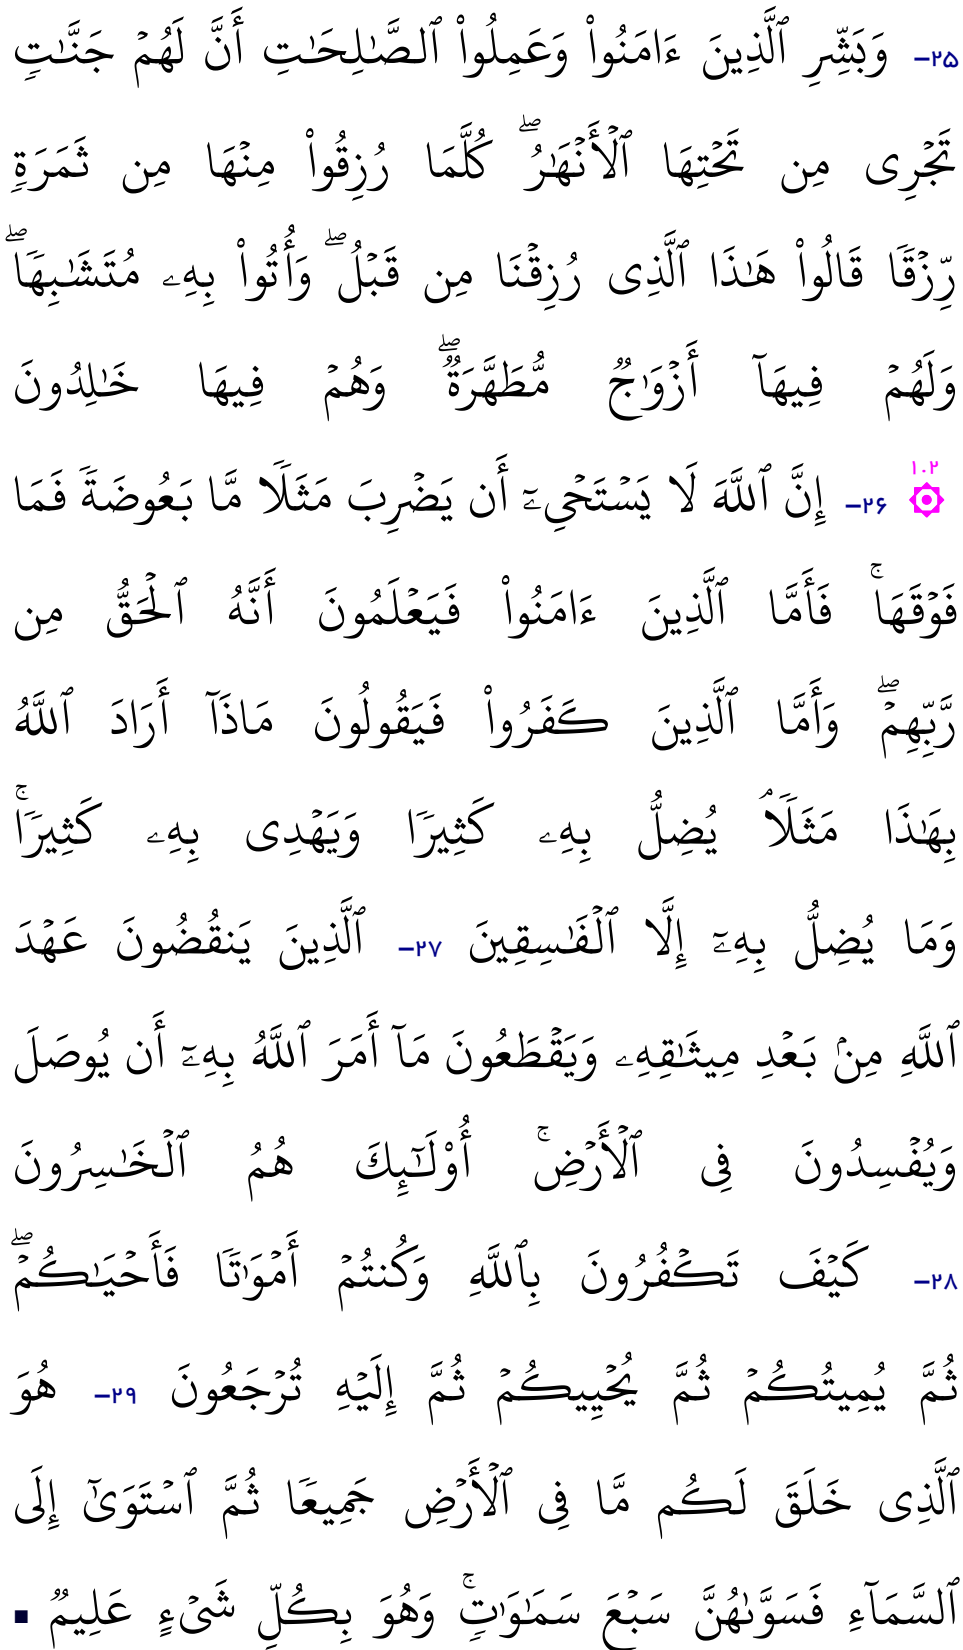 ٢٥- وَبَشِّرِ ٱلَّذِينَ ءَامَنُوا۟ وَعَمِلُوا۟ ٱلصَّـٰلِحَـٰتِ أَنَّ لَهُمۡ جَنَّـٰتࣲ
تَجۡرِی مِن تَحۡتِهَا ٱلۡأَنۡهَـٰرُۖ كُلَّمَا رُزِقُوا۟ مِنۡهَا مِن ثَمَرَةࣲ
رِّزۡقࣰا قَالُوا۟ هَـٰذَا ٱلَّذِی رُزِقۡنَا مِن قَبۡلُۖ وَأُتُوا۟ بِهِۦ مُتَشَـٰبِهࣰاۖ
وَلَهُمۡ فِیهَاۤ أَزۡوَ ٰ⁠جࣱ مُّطَهَّرَةࣱۖ وَهُمۡ فِیهَا خَـٰلِدُونَ
١٠٢ ۞ ٢۶- إِنَّ ٱللَّهَ لَا یَسۡتَحۡیِۦۤ أَن یَضۡرِبَ مَثَلࣰا مَّا بَعُوضَةࣰ فَمَا
فَوۡقَهَاۚ فَأَمَّا ٱلَّذِینَ ءَامَنُوا۟ فَیَعۡلَمُونَ أَنَّهُ ٱلۡحَقُّ مِن
رَّبِّهِمۡۖ وَأَمَّا ٱلَّذِینَ كَفَرُوا۟ فَیَقُولُونَ مَاذَاۤ أَرَادَ ٱللَّهُ
بِهَـٰذَا مَثَلࣰاۘ یُضِلُّ بِهِۦ كَثِیرࣰا وَیَهۡدِی بِهِۦ كَثِیرࣰاۚ
وَمَا یُضِلُّ بِهِۦۤ إِلَّا ٱلۡفَـٰسِقِینَ ٢٧- ٱلَّذِینَ یَنقُضُونَ عَهۡدَ
ٱللَّهِ مِنۢ بَعۡدِ مِیثَـٰقِهِۦ وَیَقۡطَعُونَ مَاۤ أَمَرَ ٱللَّهُ بِهِۦۤ أَن یُوصَلَ
وَیُفۡسِدُونَ فِی ٱلۡأَرۡضِۚ أُو۟لَـٰۤىِٕكَ هُمُ ٱلۡخَـٰسِرُونَ
٢٨- كَیۡفَ تَكۡفُرُونَ بِٱللَّهِ وَكُنتُمۡ أَمۡوَ ٰ⁠تࣰا فَأَحۡیَـٰكُمۡۖ
ثُمَّ یُمِیتُكُمۡ ثُمَّ یُحۡیِیكُمۡ ثُمَّ إِلَیۡهِ تُرۡجَعُونَ ٢٩- هُوَ
ٱلَّذِی خَلَقَ لَكُم مَّا فِی ٱلۡأَرۡضِ جَمِیعࣰا ثُمَّ ٱسۡتَوَىٰۤ إِلَى
ٱلسَّمَاۤءِ فَسَوَّىٰهُنَّ سَبۡعَ سَمَـٰوَ ٰ⁠تࣲۚ وَهُوَ بِكُلِّ شَیۡءٍ عَلِیمࣱ ■